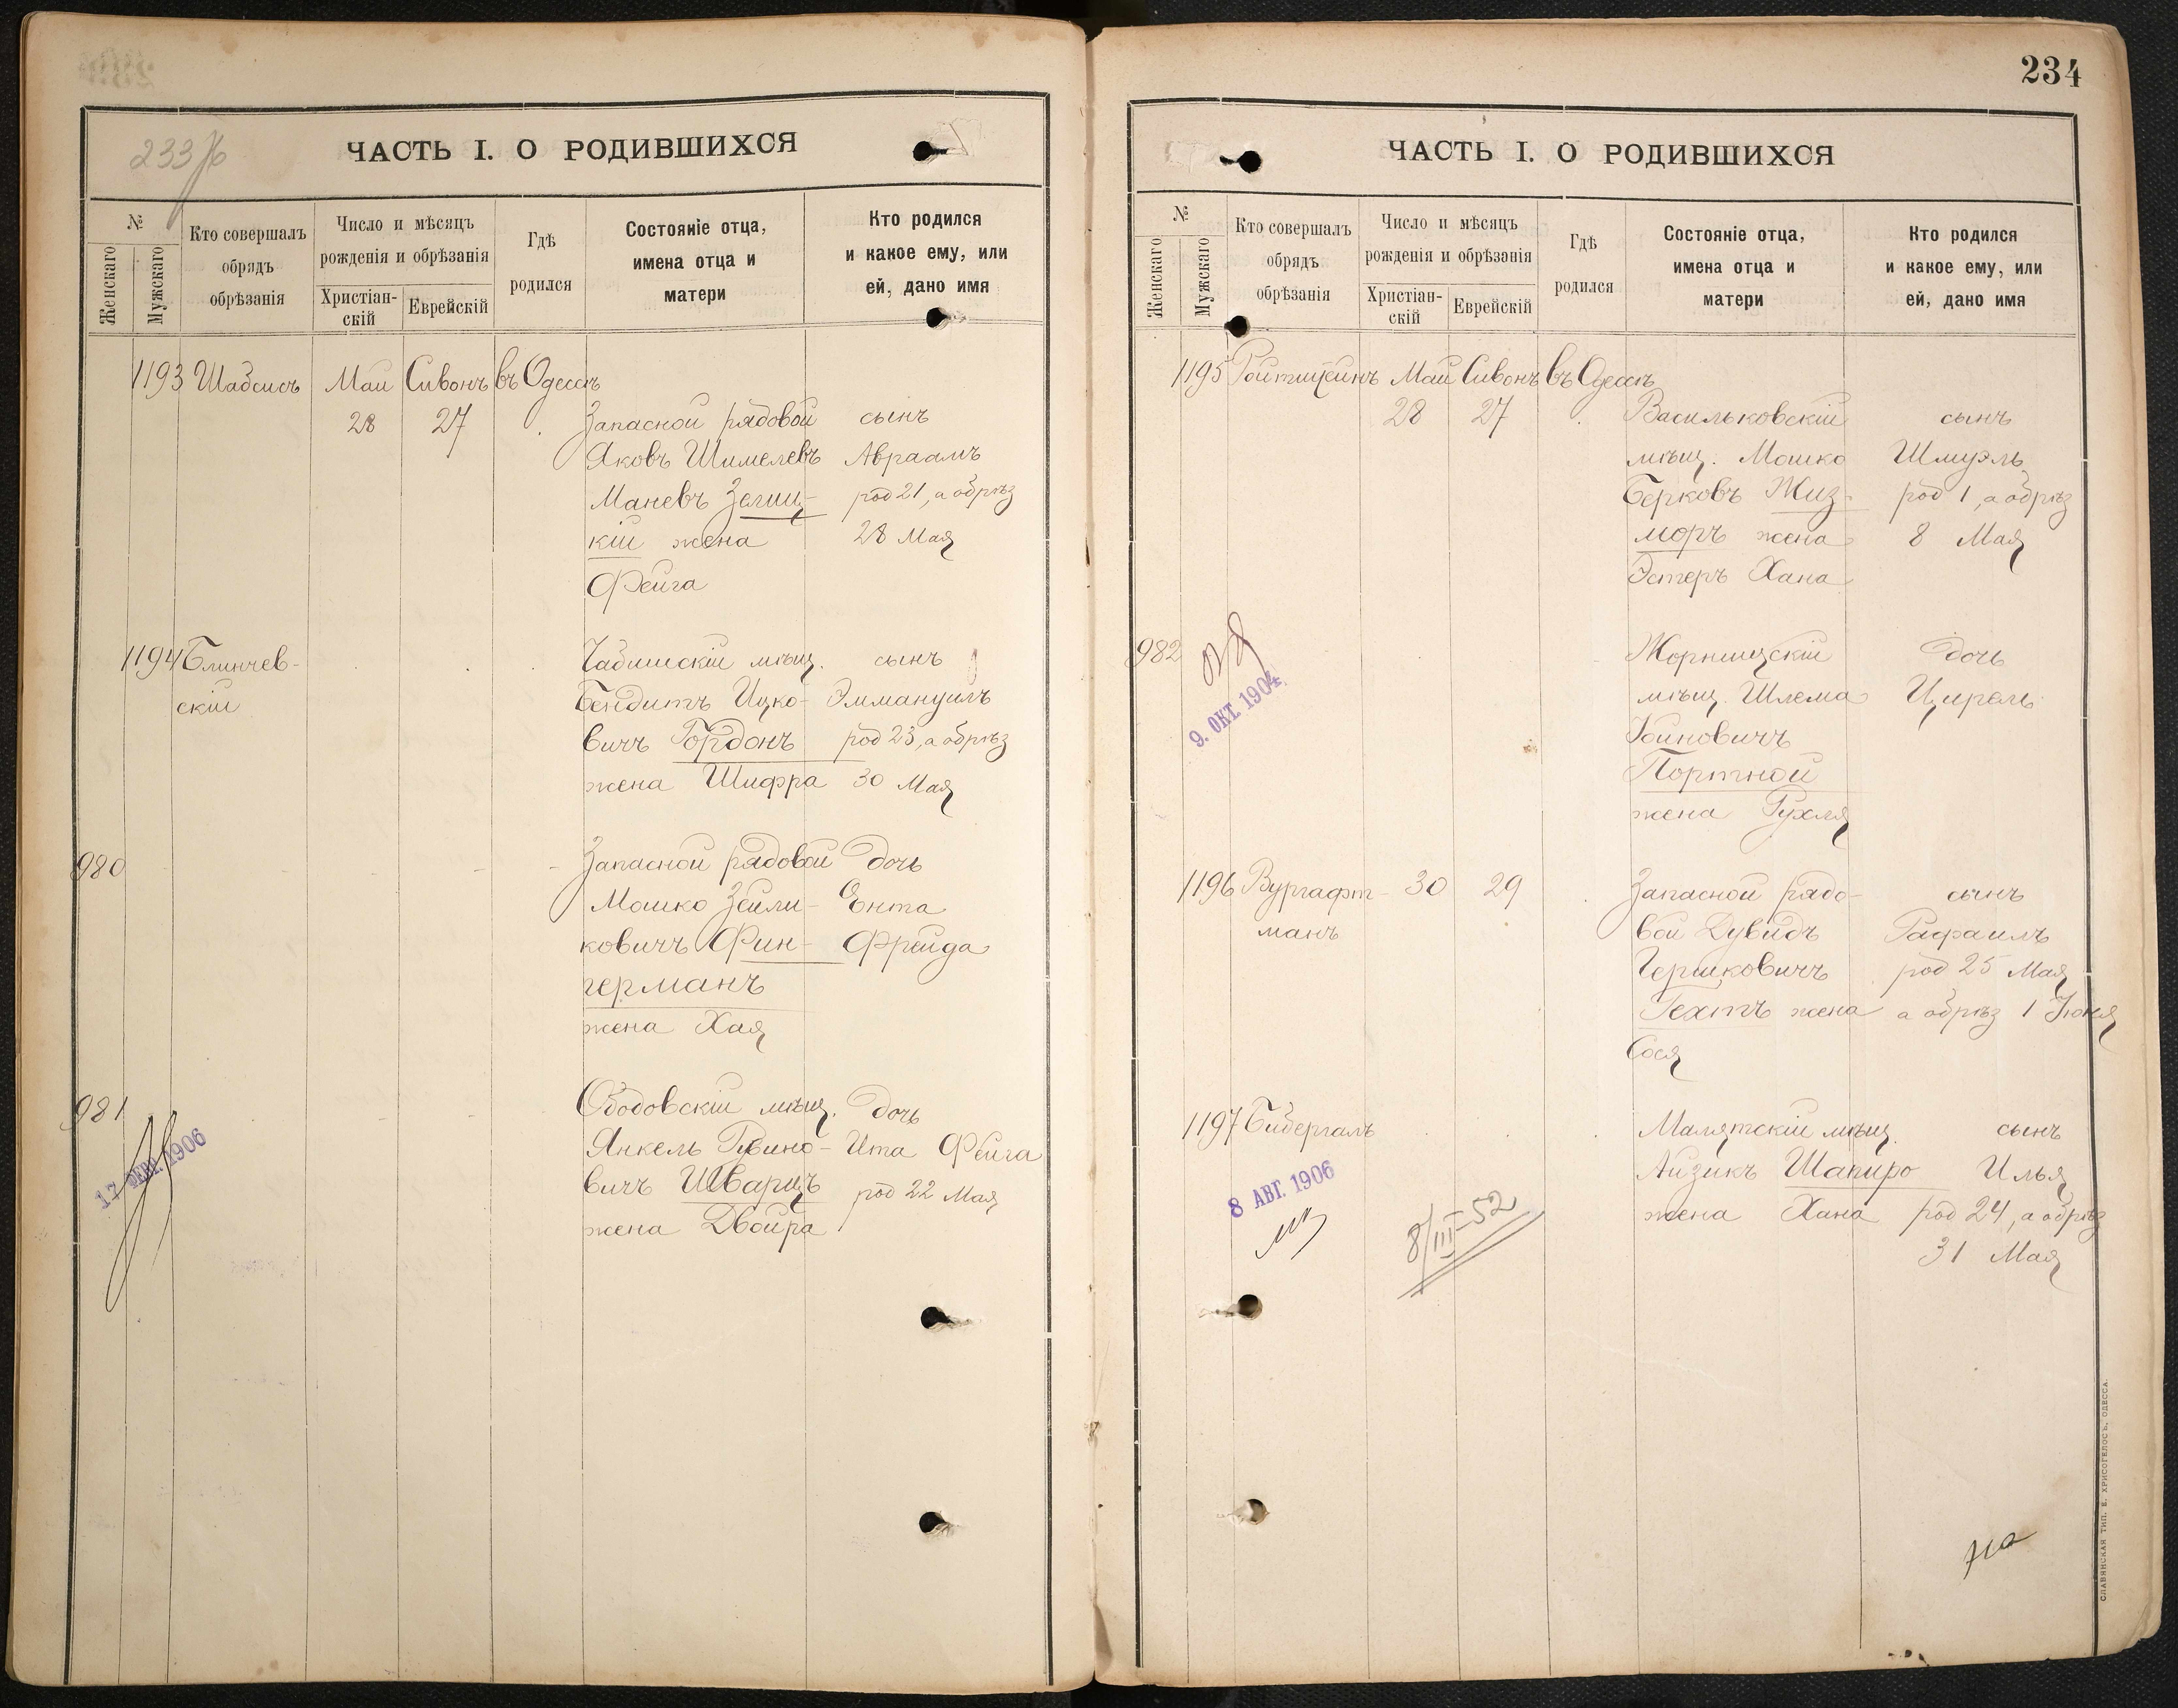 233 об
ЧАСТЬ I. О РОДИВШИХСЯ
№
Женскаго
Мужскаго
Кто совершалъ
обрядъ
обрѣзанія
Число и мѣсяцъ
рожденія и обрѣзанія
Христіан-
скій
Еврейскій
Гдѣ
родился
Состояніе отца,
имена отца и
матери
Кто родился
и какое ему, или
ей, дано имя
1193 Шабсисъ Май Сивонъ въ Одессѣ
28 27 Запасной рядовой сынъ
Яковъ Шимелевъ Авраамъ
Маневъ род 21, а обрѣз
кій жена 28 Мая
Фейга
1194 Блинчев- мѣщ. сынъ
скій Бендитъ Ицко- Эммануилъ
вичъ Гордонъ род 23, а обрѣз
жена Шифра 30 Мая
980 Запасной рядовой дочь
Мошко Зейли- Ента
ковичъ Фин- Фрейда
германъ
жена Хая
981 Ободовскій мѣщ. дочь
Янкель Рувино- Ита Фейга
вичъ Шварцъ род 22 Мая
жена Двойра
17 ФЕВР. 1906
234
ЧАСТЬ I. О РОДИВШИХСЯ
№
Женскаго
Мужскаго
Кто совершалъ
обрядъ
обрѣзанія
Число и мѣсяцъ
рожденія и обрѣзанія
Христіан-
скій
Еврейскій
Гдѣ
родился
Состояніе отца,
имена отца и
матери
Кто родился
и какое ему, или
ей, дано имя
1195 Ройтштейнъ Май Сивонъ въ Одессѣ
28 27 Васильковскій сынъ
мѣщ. Мошко Шмуэль
Берковъ Жиз- род 1, а обрѣз
моръ жена 8 Мая
Эстеръ Хана
982 Жорнищскій дочь
мѣщ. Шлема Цирель
Портной
жена Рухля
9. ОКТ. 1904
1196 Вургафт- 30 29 Запасной рядо- сынъ
манъ вой Дувидъ Рафаилъ
Гершковичъ род 25 Мая
Гехтъ жена а обрѣз 1 Іюня
Сося
1197 Бибергалъ Малятскій мѣщ. сынъ
Айзикъ Шапиро Илья
жена Хана род 24, а обрѣз
31 Мая
8 АВГ. 1906
8/III-52
СЛАВЯНСКАЯ ТИП. Е. ХРИСОГЕЛОСЪ, ОДЕССА.